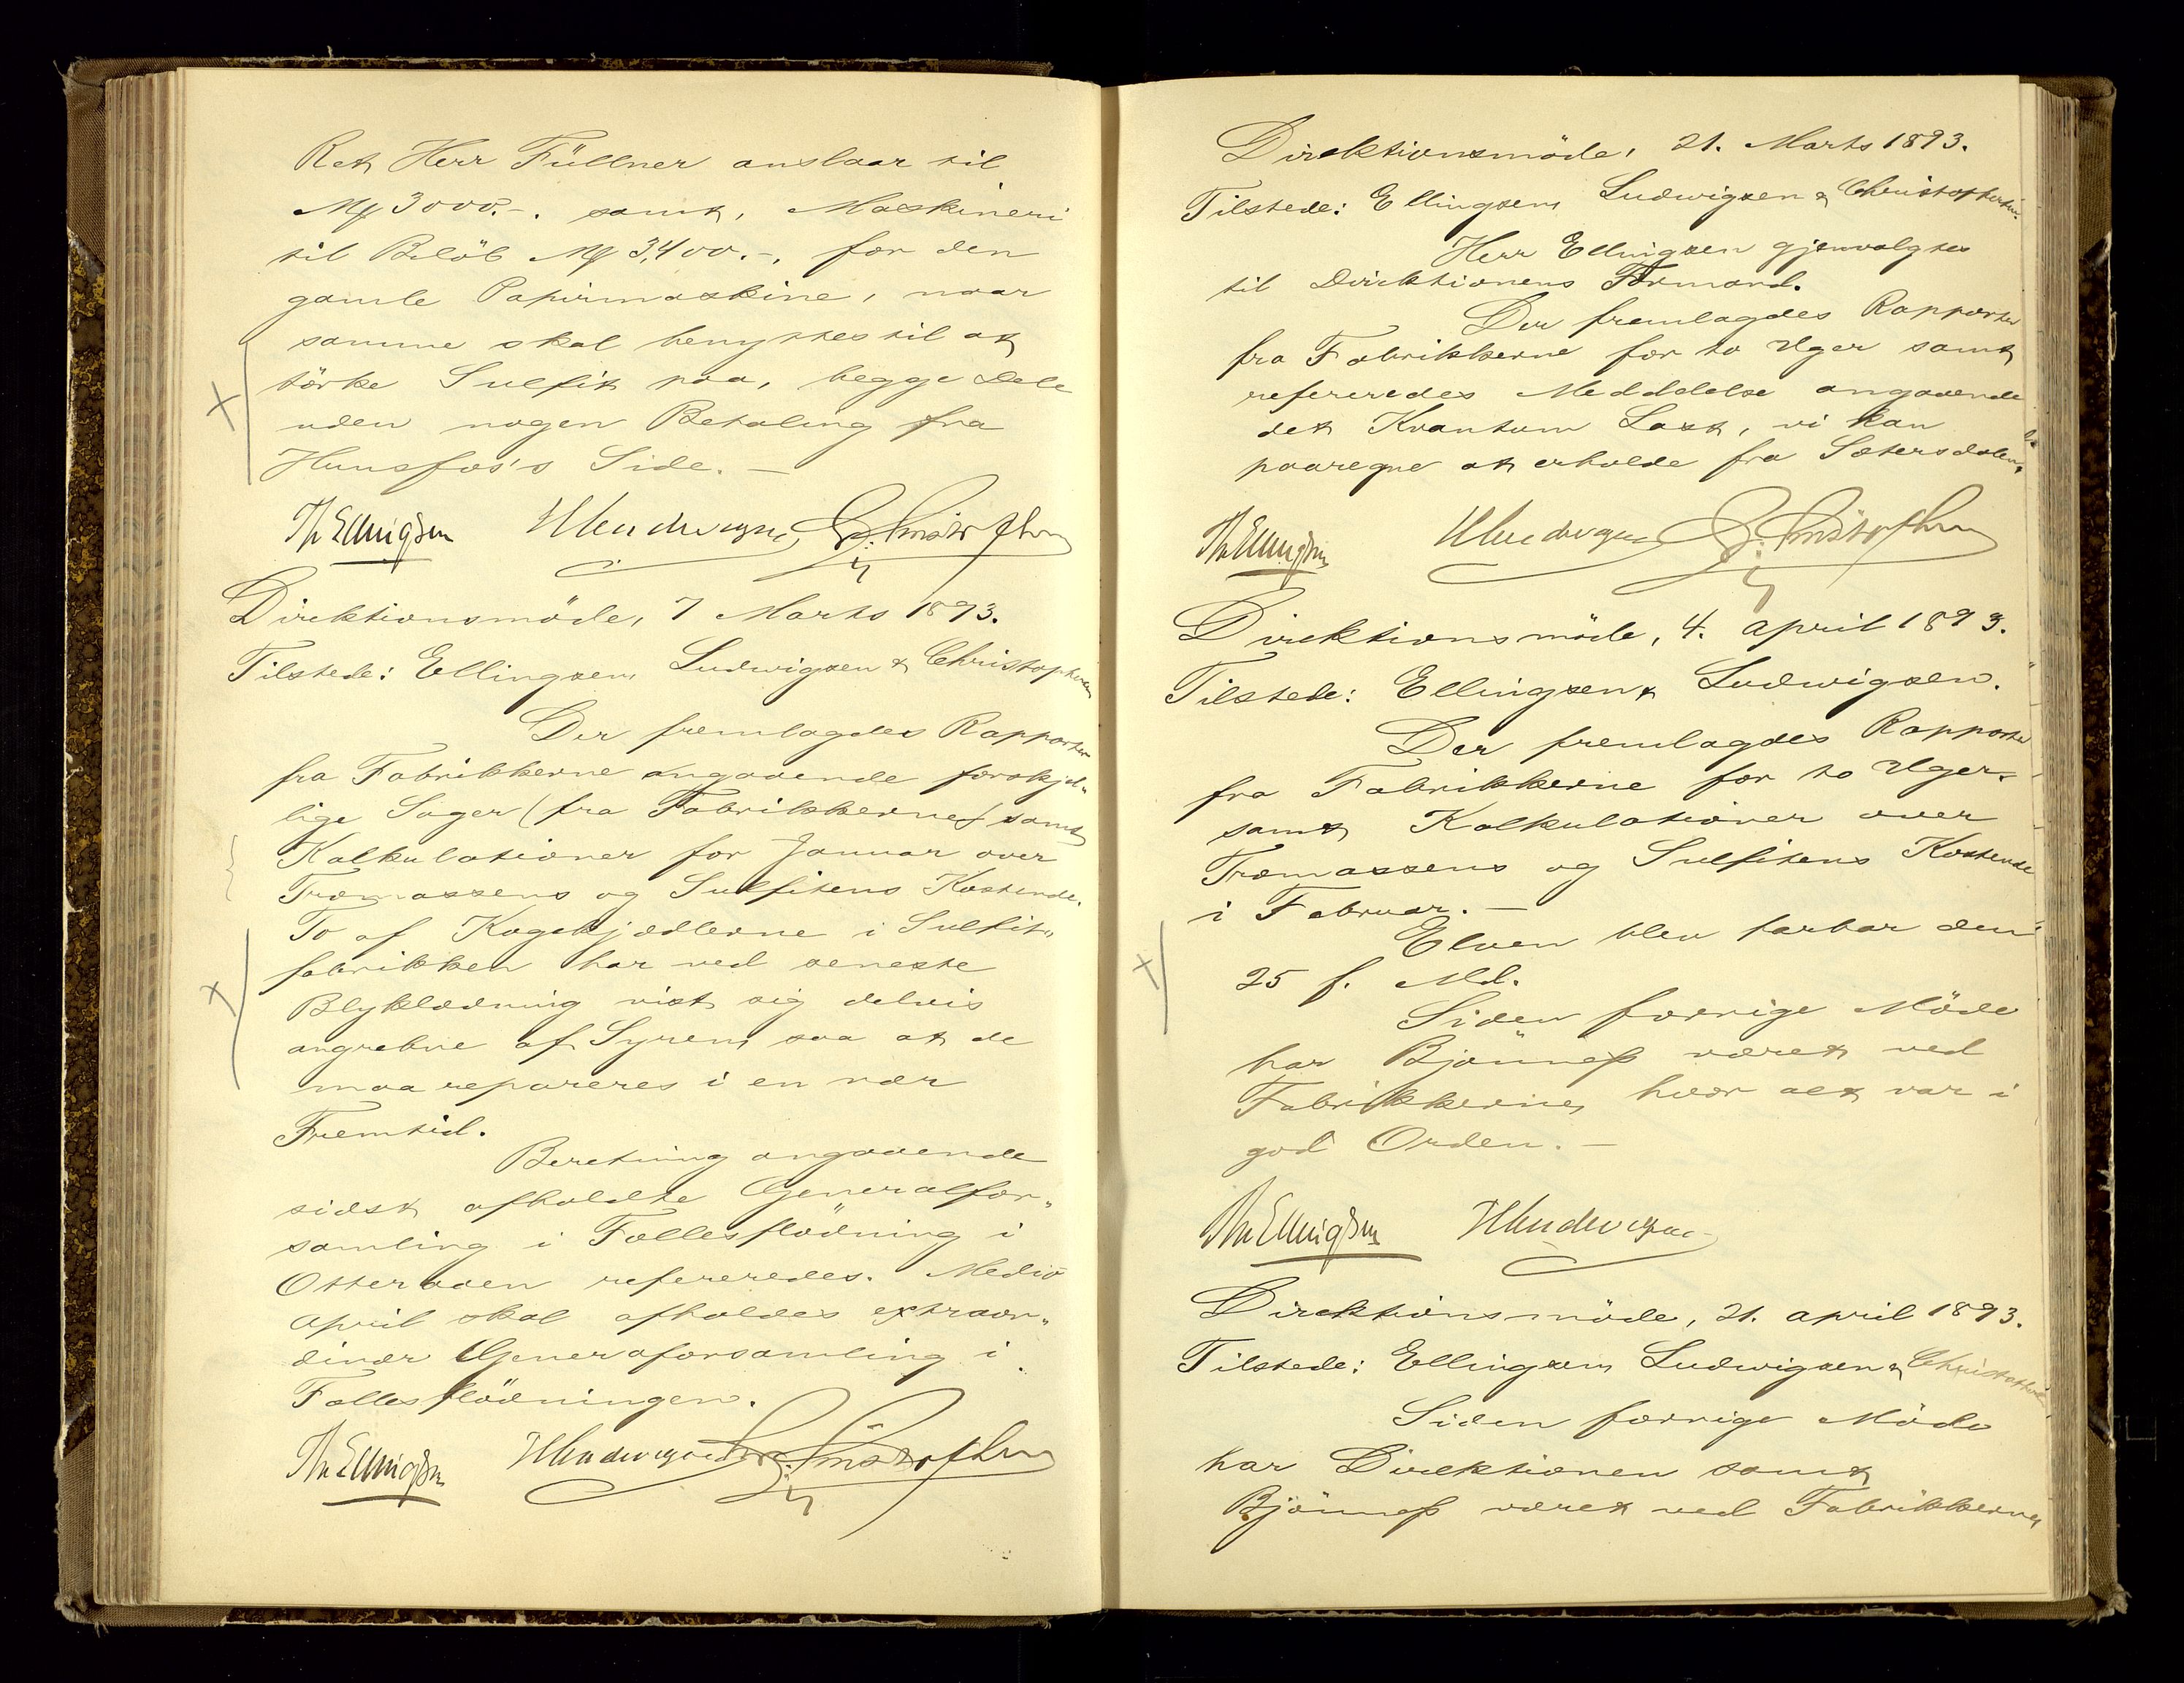 Ret Herr Füllner anslaar til
M 3000.-. samt, Maskineri
til Belöb M 3,400.-, for den
gamle Papirmaskine, naar
samme skal benyttes til at
törke Sulfit paa, begge Dele
uden nogen Betaling fra
Hunsfos's Side. -
Th Ellingsen H Ludwigsen Christophersen
Direktionsmöde, 7 Marts 1893.
Tilstede: Ellingsen, Ludwigsen & Christophersen
Der fremlagdes Rapporter
fra Fabrikkerne angaaende forskjel-
lige Sager (fra Fabrikkerne) samt
Kalkulationer for Januar over
Træmassens og Sulfitens Kostende.
To af Kogekjedlerne i Sulfit-
fabrikken har ved seneste
Blyklædning vist sig delvis
angrebne af Syren, saa at de
maa repareres i en nær
Fremtid.
Beretning angaaende
sidst afholdte Generalfor-
samling i Fællesflödning i
Otteraaen refereredes. Medio
April skal afholdes extraor-
dinær Generaforsamling i
Fællesflödningen.
Th Ellingsen H Ludwigsen Christophersen
Direktionsmöde, 21. Marts 1893.
Tilstede: Ellingsen, Ludwigsen & Christophersen.
Herr Ellingsen gjenvalgtes
til Direktionens Formand.
Der fremlagdes Rapporter
fra Fabrikkerne for to Uger samt
refereredes Meddelelse angaaende
det Kvantum Last, vi kan
paaregne at erholde fra Sætersdalen.
Th Ellingsen H Ludwigsen Christophersen
Direktionsmöde, 4. April 1893.
Tilstede: Ellingsen & Ludwigsen.
Der fremlagdes Rapporter
fra Fabrikkerne for to Uger
samt Kalkulationer over
Træmassens og Sulfitens Kostende
i Februar. -
Elven blev farbar den
25 f. Md.
Siden forrige Möde
har Bjönness været ved
Fabrikkerne, hvor alt var i
god Orden. -
Th Ellingsen H Ludwigsen
Direktionsmöde, 21. April 1893.
Tilstede: Ellingsen, Ludwigsen & Christophersen
Siden forrige Möde
har Direktionen samt
Bjönness været ved Fabrikkerne,